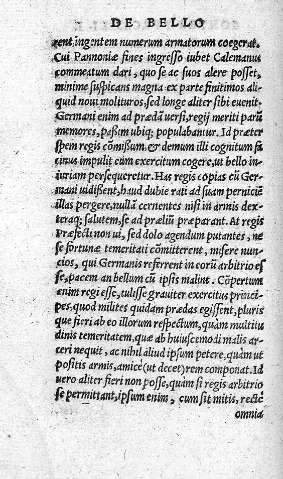 DE BELLO
rent, ingentem numerum armatorum coegerat.
Cui Pannoniæ fines ingresso iubet Calemanus
commeatum dari, quo se ac suos alere posset,
minime suspicans magna ex parte finitimos ali-
quid noui molituros, sed longe aliter sibi euenit.
Germani enim ad prædã uersi, regij meriti parũ
memores, paßim ubiq; populabantur. Id præter
spem regis cõmißum, & demum illi cognitum fa
cinus impulit eum exercitum cogere, ut bello in-
iuriam persequeretur. Has regis copias cũ Ger-
mani uidißent, haud dubie rati ad suam perniciẽ
illas pergere, nullã cernentes nisi in armis dex-
teraq; salutem, se ad præliũ præparant. At regis
Præfecti non ui, sed dolo agendum putantes, ne
se fortunæ temeritati cõmitterent, misere nun-
cios, qui Germanis referrent in eorũ arbitrio eß
se, pacem an bellum cũ ipsis malint. Cõpertum
enim regi esse, tulisse grauiter exercitus princi-
pes, quod milites quidam prædas egißent, pluris
que fieri ab eo illorum respectum, quàm multitu
dinis temeritatem, quæ ab huiuscemodi malis ar-
ceri nequit, ac nihil aliud ipsum petere, quàm ut
positis armis, amice (ut decet) rem componat. Id
uero aliter fieri non posse, quàm si regis arbitrio
se permittant, ipsum enim, cum sit mitis, rectè
omnia